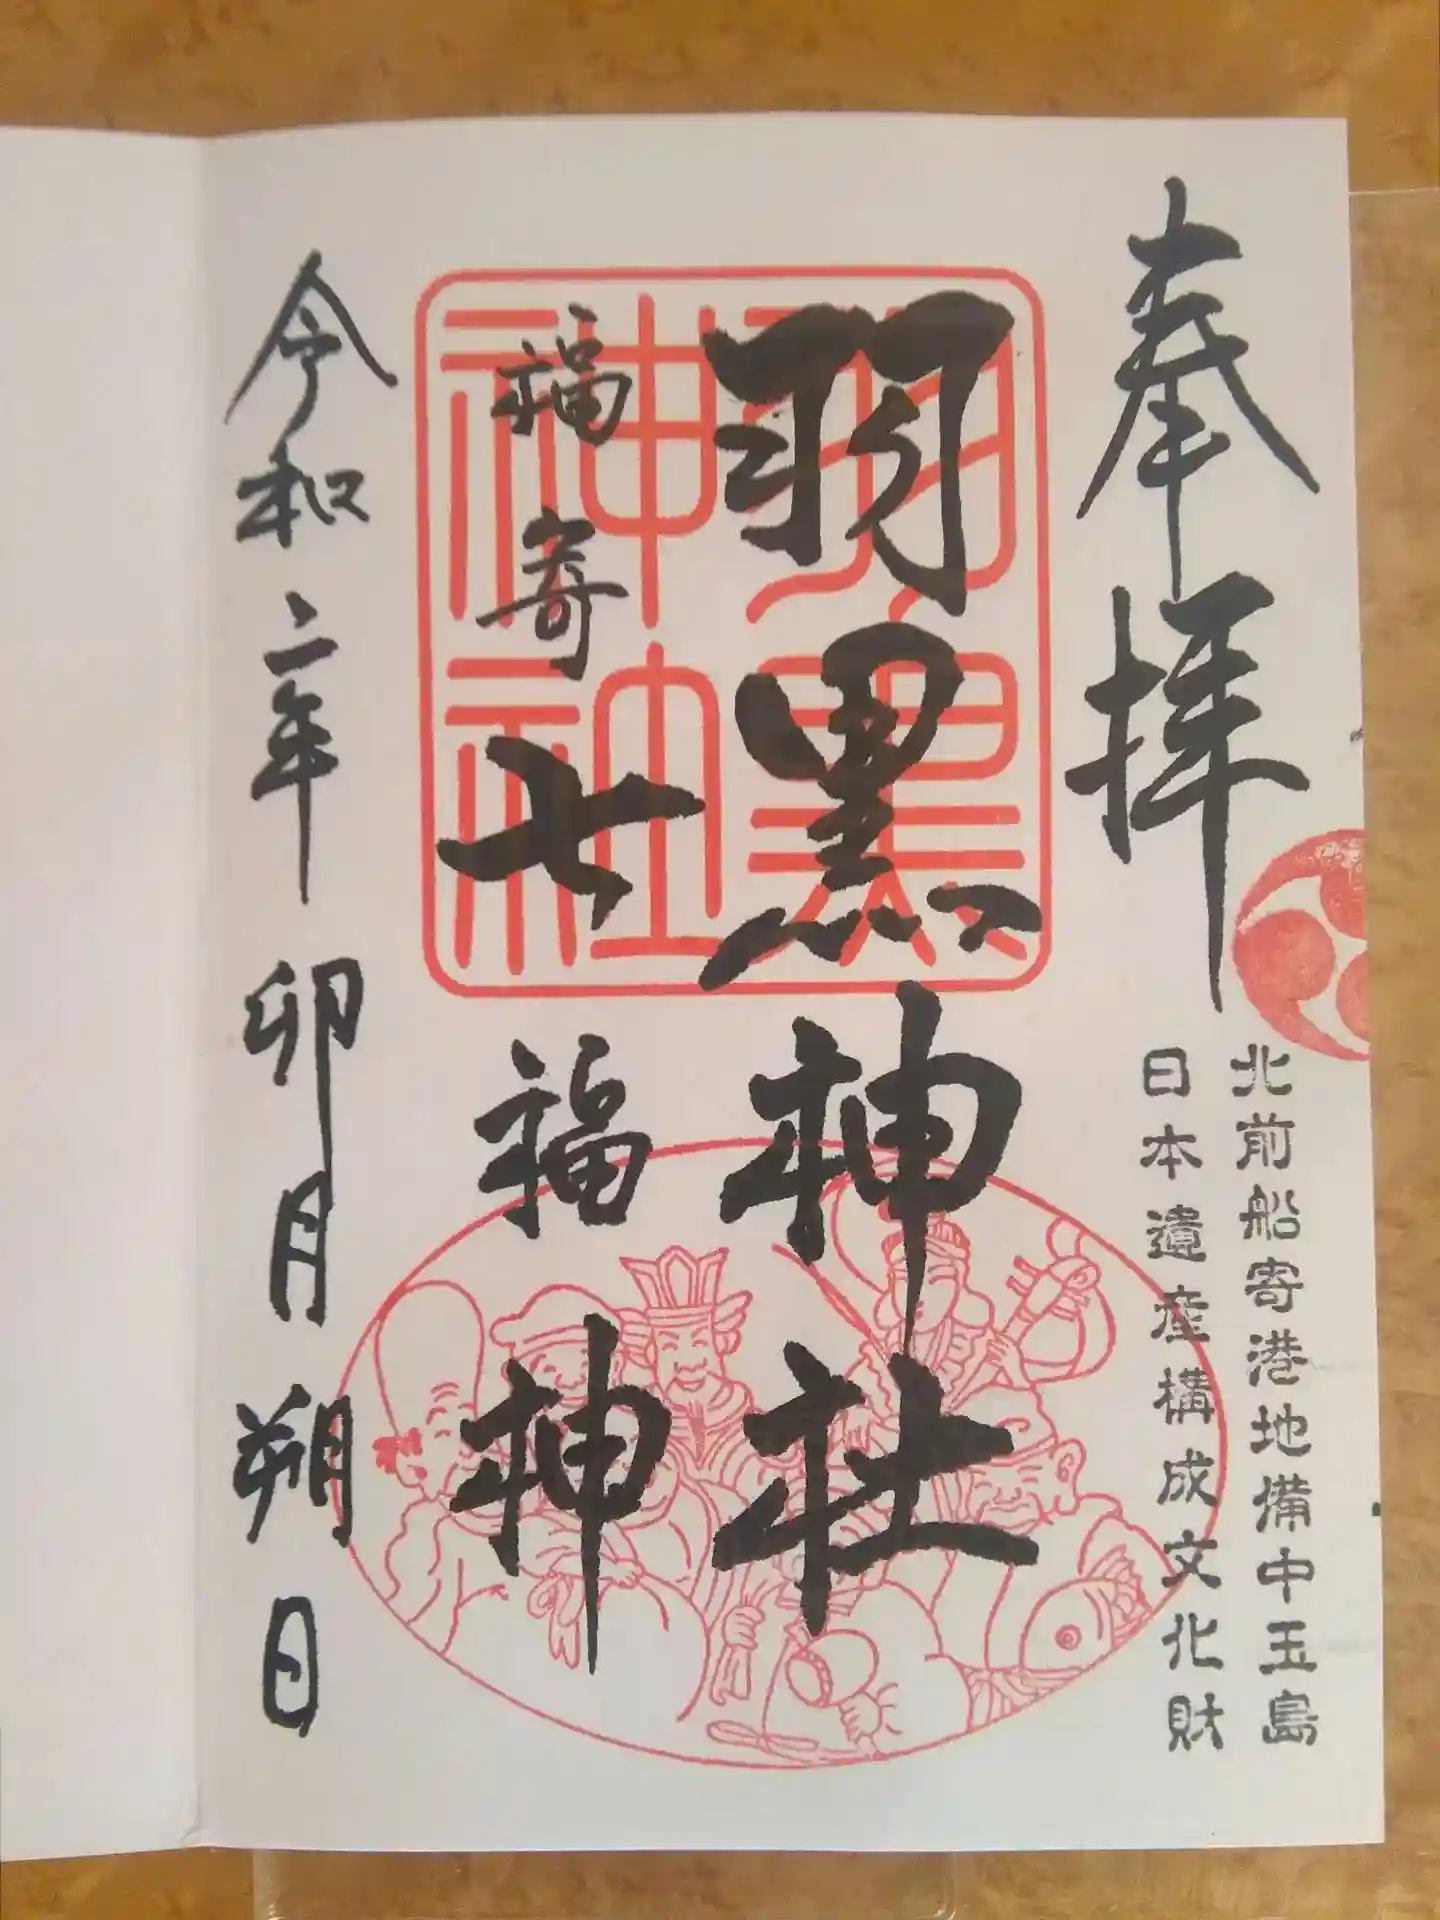 奉拝
北前船寄港地備中玉島
日本遺産構成文化財
羽黒神社
福寄七福神
羽黒神社
令和二年卯月朔日